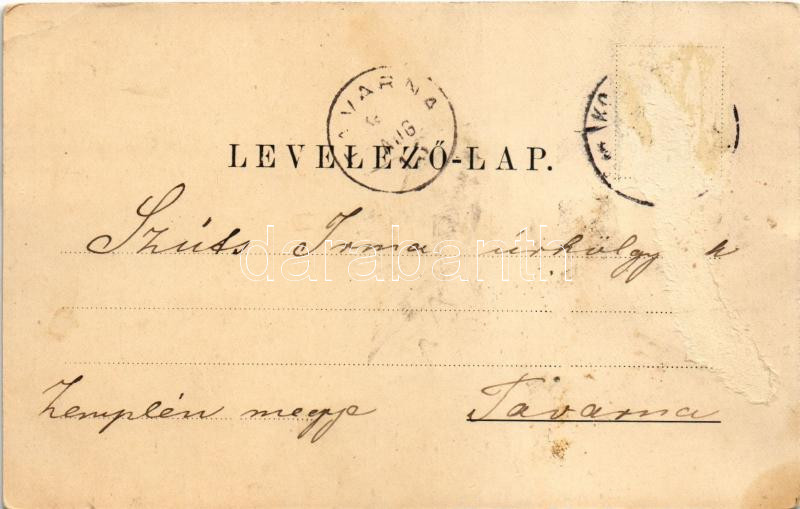 VARNA
AUG
KO
LEVELEZŐ-LAP.
Szúts Irma úrhölgy
darabanth
Zemplén megye Tavarna